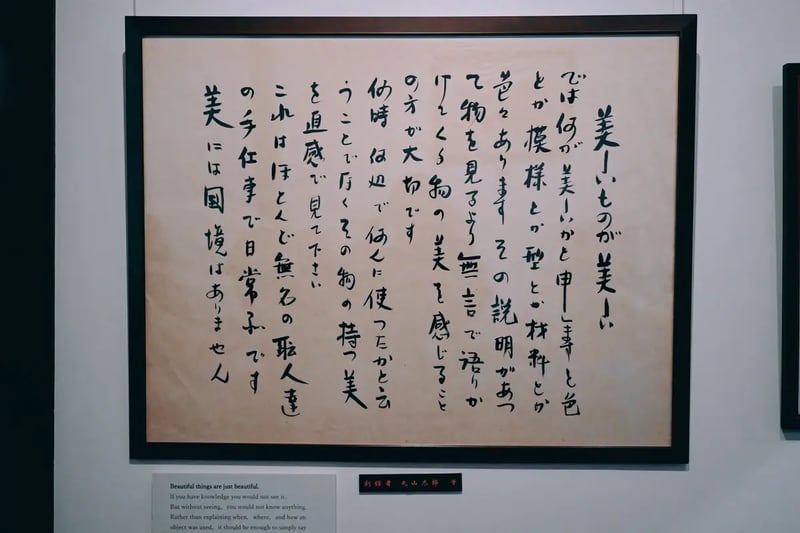 美しいものが美しい
では何が美しいかと申しますと色
とか模様とか型とか材料とか
色々あります その説明があつ
て物を見るより無言で語りか
けてくる物の美を感じること
の方が大切です
何時何処で何んに使つたかと云
うことで尽くその物の持つ美
を直感で見て下さい
これはほとんど無名の耺人達
の手仕事で日常品です
美には國境はありません
創館者 丸山太郎
Beautiful things are just beautiful.
If you have knowledge you would not see it.
But without seeing, you would not know anything.
Rather than explaining when, where, and how an
object was used, it should be enough to simply say